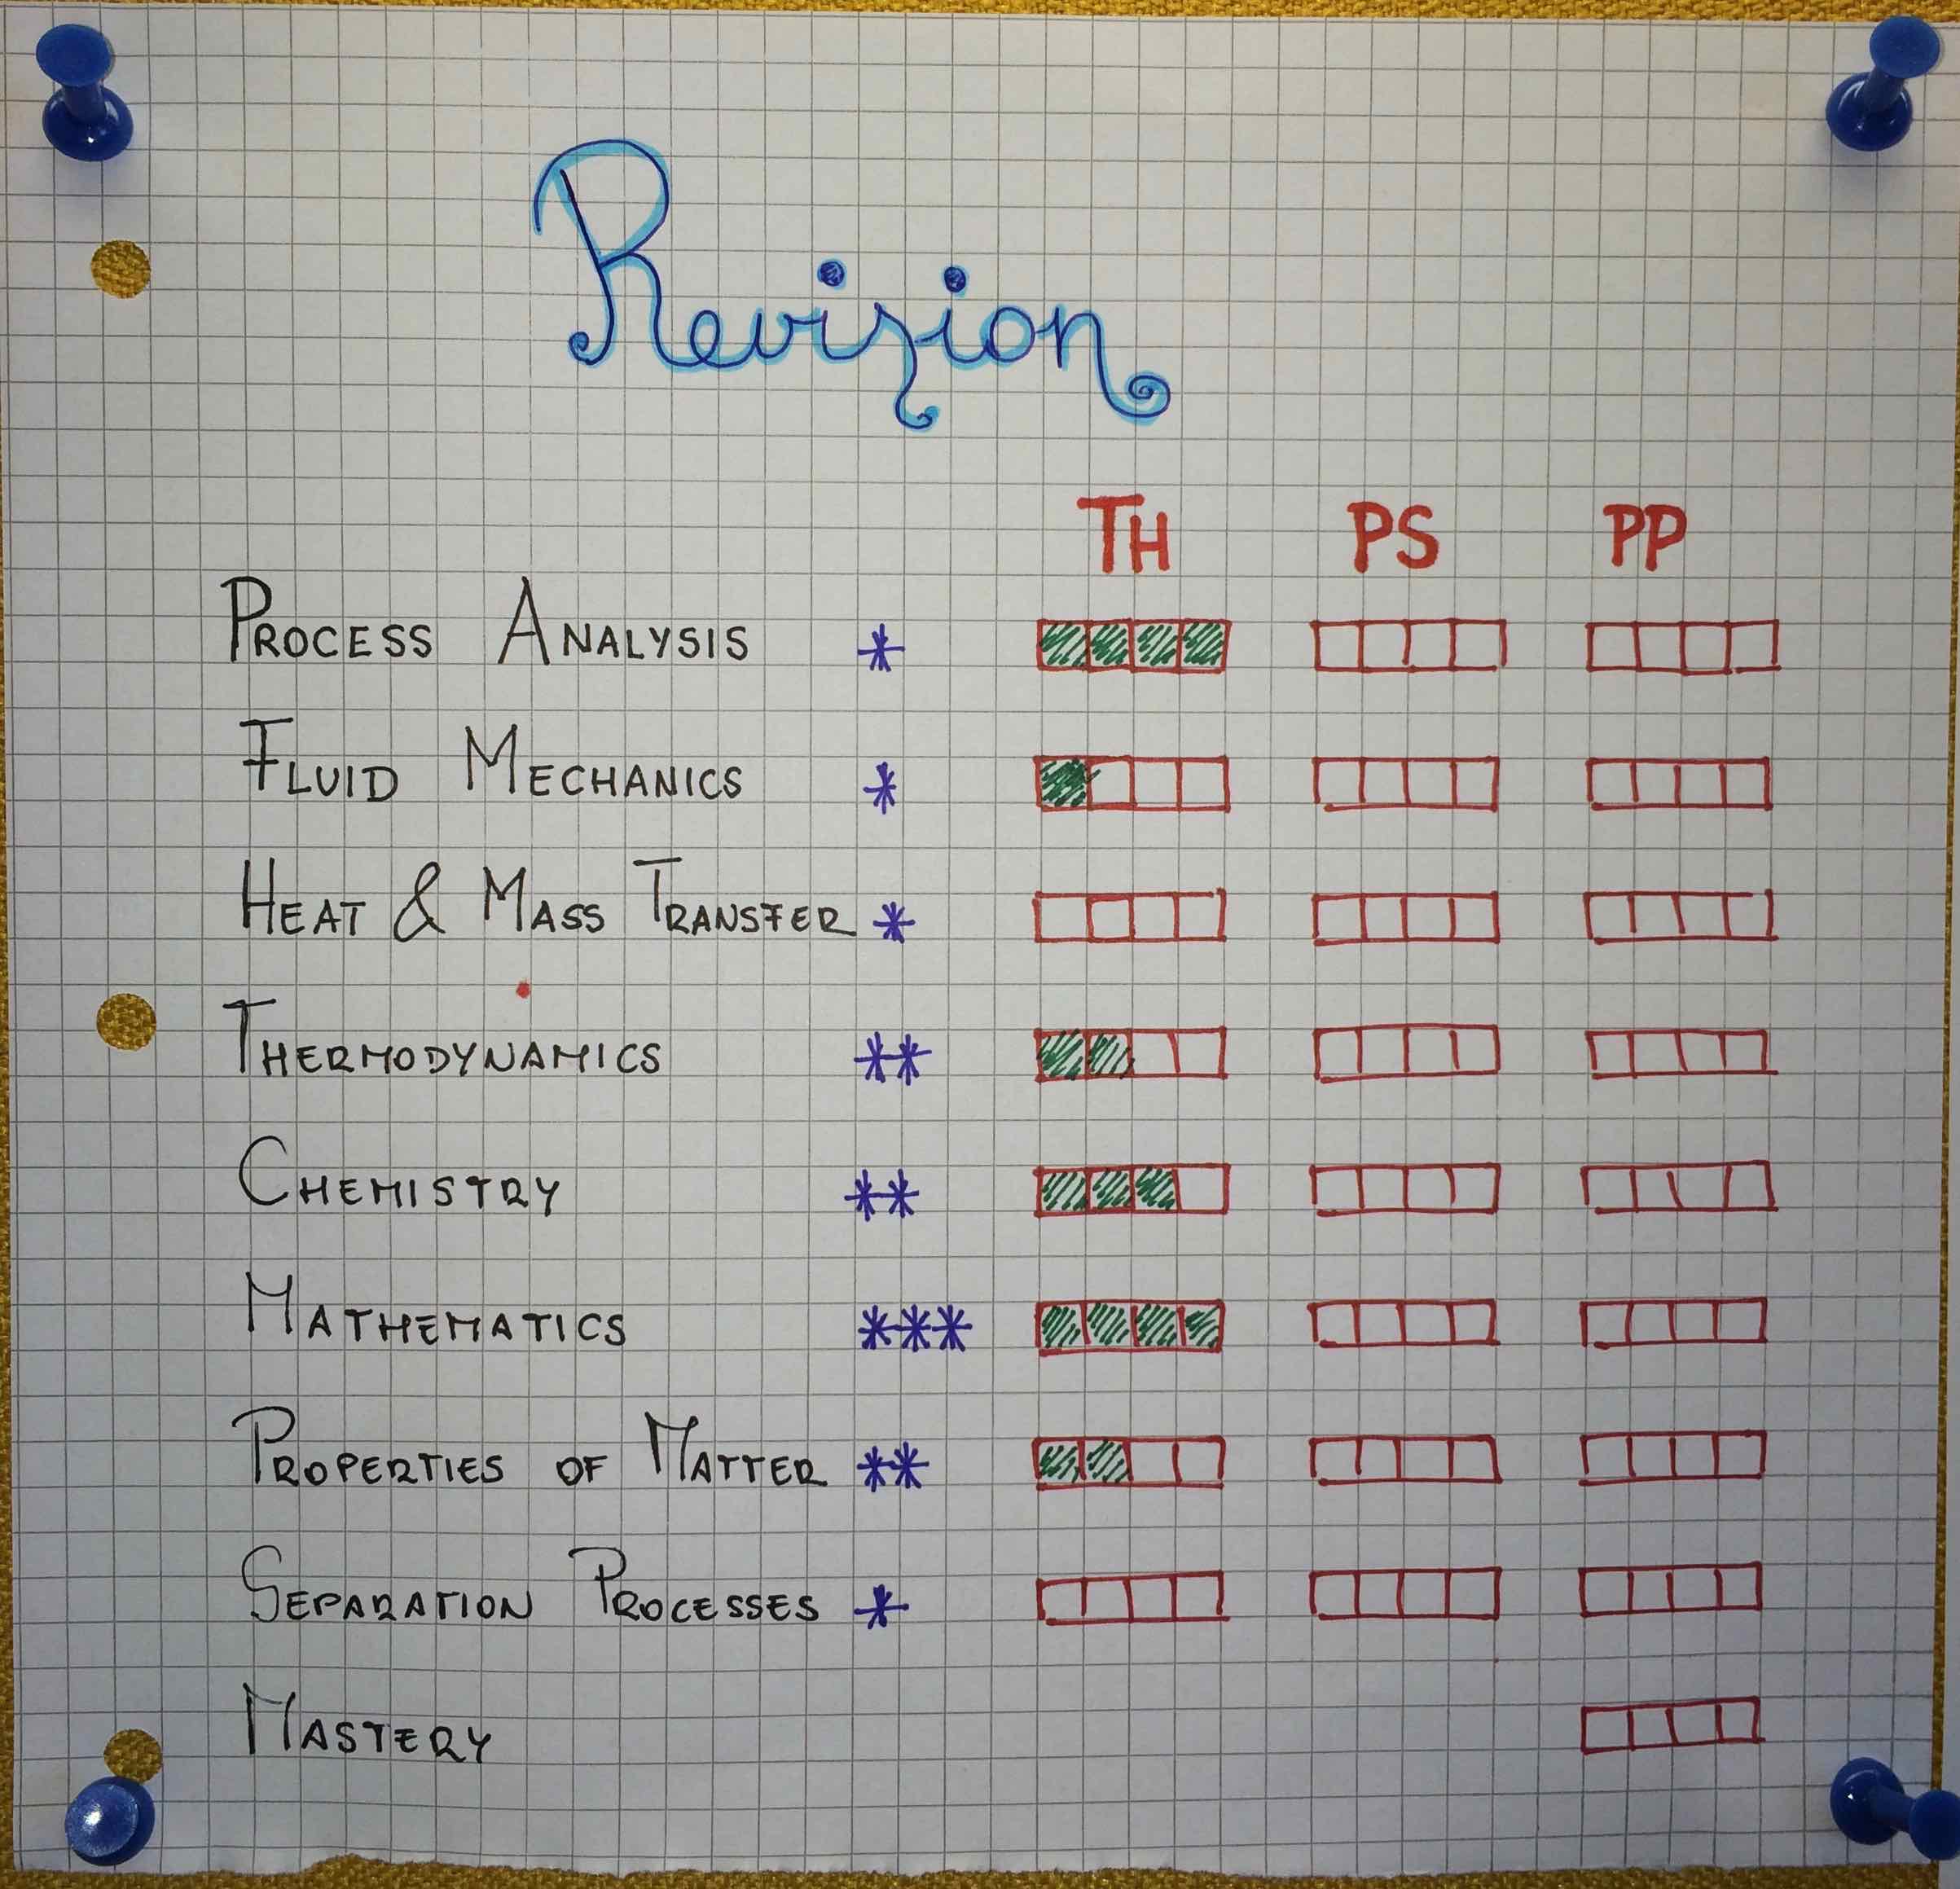 Revision
TH PS PP
PROCESS ANALYSIS *
FLUID MECHANICS *
HEAT & MASS TRANSFER *
THERMODYNAMICS **
CHEMISTRY **
MATHEMATICS ***
PROPERTIES OF MATTER **
SEPARATION PROCESSES *
MASTERY